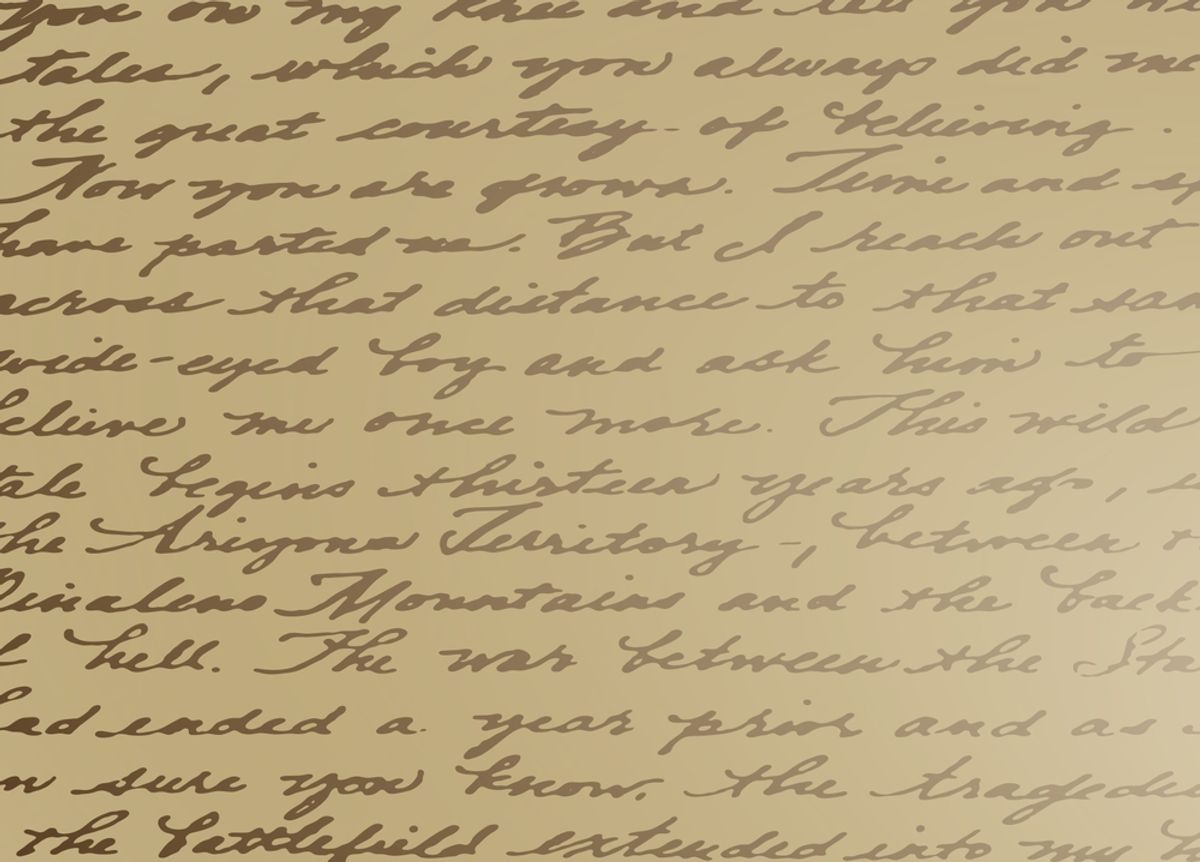 you on my knee and tell you wi
tales, which you always did me
the great courtesy - of believing .
Now you are grown. Time and sp
have parted me. But I reach out
across that distance to that sam
wide-eyed boy and ask him to
believe me once more. This wild
tale begins thirteen years ago, i
the Arizona Territory -, between t
Pinaleno Mountains and the back
hell. The war between the Sta
had ended a year prior and as
sure you know, the tragedie
the battlefield extended into my